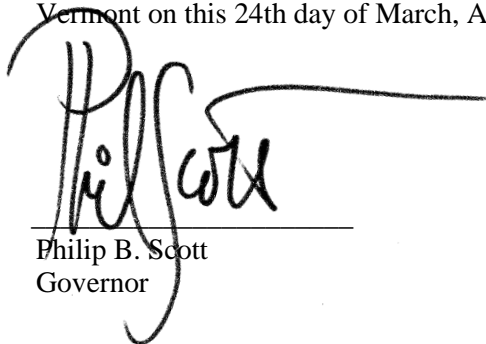 Vermont on this 24th day of March, A
Phil Scott
Philip B. Scott
Governor